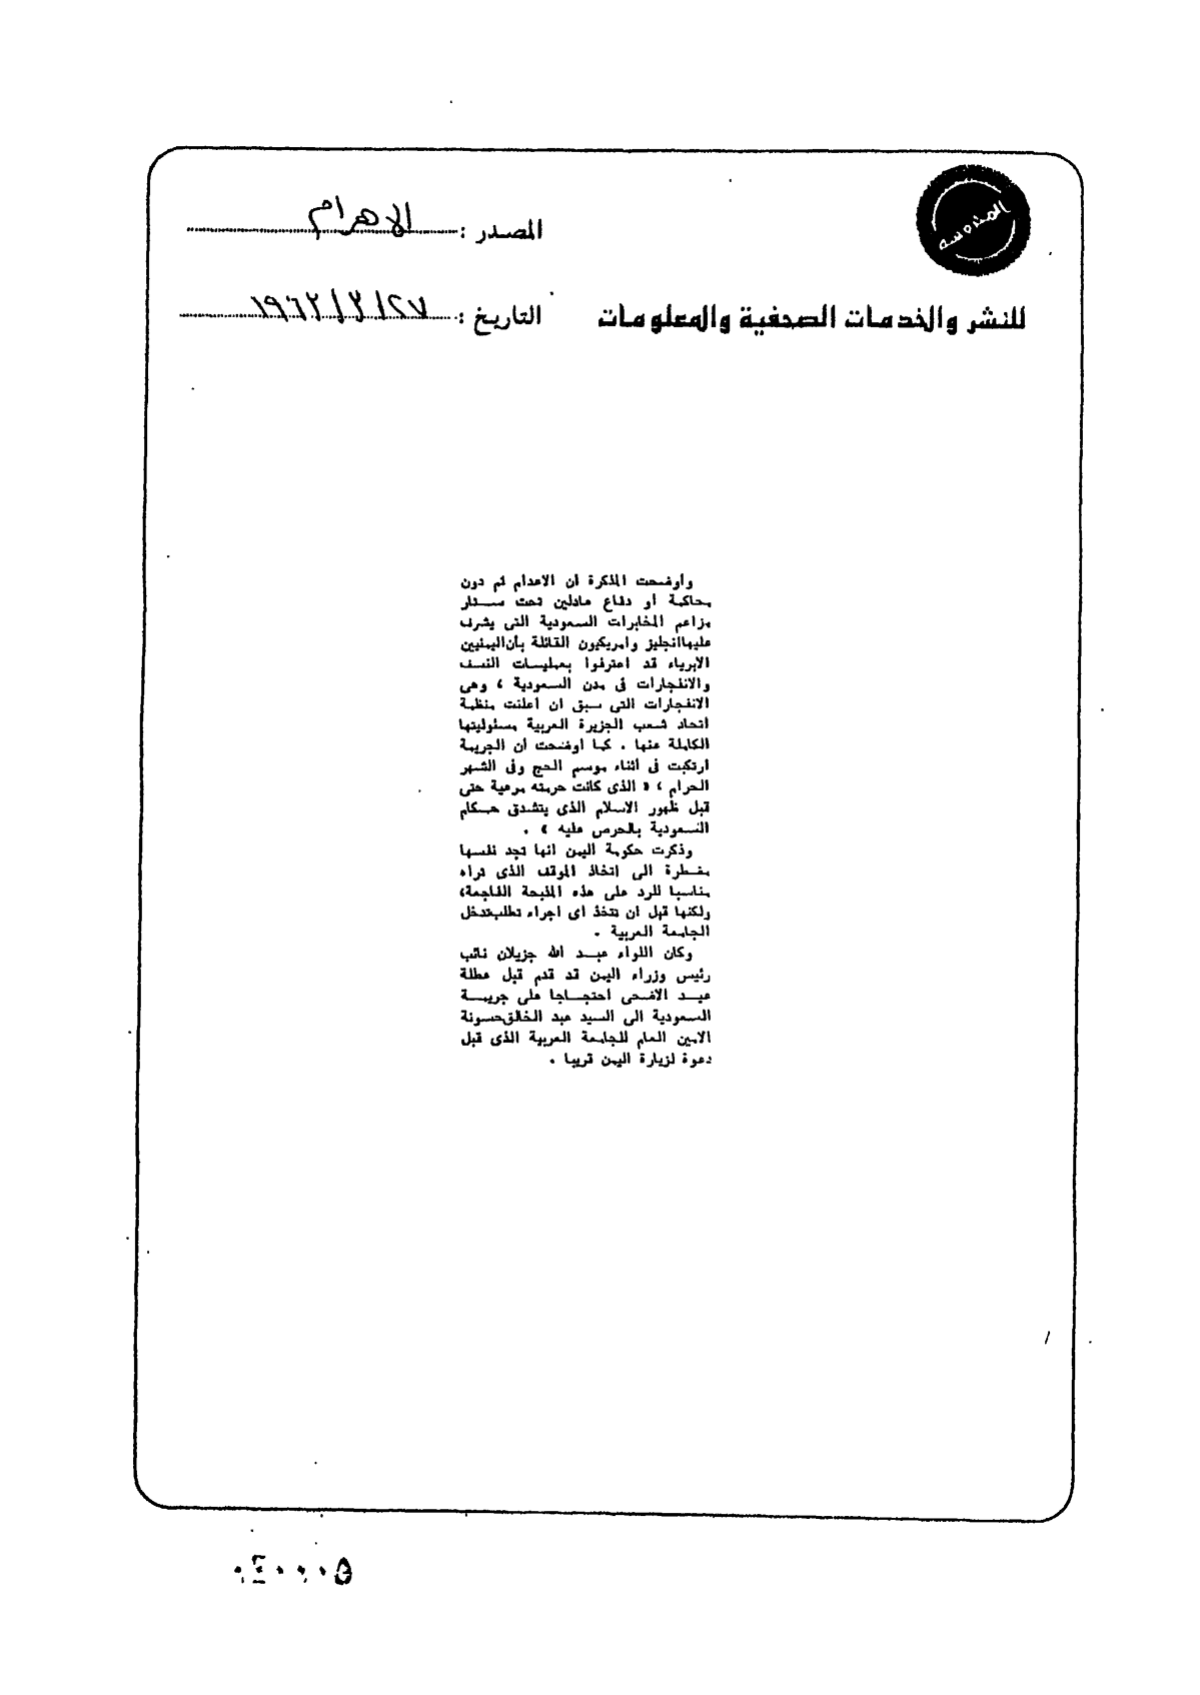 المحروسه
المصدر : الاهرام
للنشر والخدمات الصحفية والمعلومات
التاريخ : ٢٧/٣/١٩٦٢
وأوضحت المذكرة ان الاعدام تم دون
محاكمة أو دفاع عادلين تحت ستار
مزاعم المخابرات السعودية التى يشرف
عليها انجليز وامريكيون القائلة بأن اليمنيين
الابرياء قد اعترفوا بعمليات النسف
والانفجارات فى مدن السعودية ، وهى
الانفجارات التى سبق ان اعلنت منظمة
اتحاد شعب الجزيرة العربية مسئوليتها
الكاملة عنها . كما اوضحت أن الجريمة
ارتكبت فى أثناء موسم الحج وفى الشهر
الحرام ، « الذى كانت حرمته مرعية حتى
قبل ظهور الاسلام الذى يتشدق حكام
السعودية بالحرص عليه » .
وذكرت حكومة اليمن انها تجد نفسها
مضطرة الى اتخاذ الموقف الذى تراه
مناسبا للرد على هذه المذبحة الفاجعة،
ولكنها قبل ان تتخذ اى اجراء تطلب تدخل
الجامعة العربية .
وكان اللواء عبد الله جزيلان نائب
رئيس وزراء اليمن قد قدم قبل عطلة
عيد الاضحى احتجاجا على جريمة
السعودية الى السيد عبد الخالق حسونة
الامين العام للجامعة العربية الذى قبل
دعوة لزيارة اليمن قريبا .